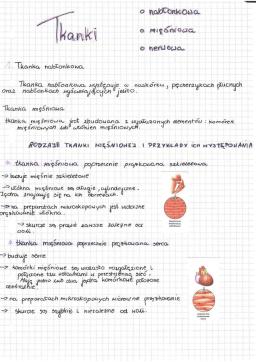 Tkanki
o nabłonkowa
o mięśniowa
o nerwowa
1. Tkanka nabłonkowa
Tkanka nabłonkowa występuje w naskórku, pęcherzykach płucnych
oraz nabłonkach wyściełających jelito.
Tkanka mięśniowa
tkanka mięśniowa jest zbudowana z wydłużonych elementów: komórek
mięśniowych lub włókien mięśniowych.
RODZAJE TKANKI MIĘŚNIOWEJ I PRZYKŁADY ich WYSTĘPOWANIA
* tkanka mięśniowa poprzecznie prążkowana szkieletowa
→ buduje mięśnie szkieletowe
→ włókna mięśniowe są długie, cylindryczne.
Jądra znajdują się na ich obrzeżach.
→ na preparatach mikroskopowych jest widoczne
prążkowanie włókna.
→ skurcze są prawie zawsze zależne od
woli.
* tkanka mięśniowa poprzecznie prążkowana serca
→ buduje serce
→ komórki mięśniowe są widlasto rozgałęzione i
połączone ze sobą
jedno lub dwa jądra komórkowe położone
centralnie
→ na preparatach mikroskopowych widoczne prążkowanie
→ skurcze są szybkie i niezależne od woli.